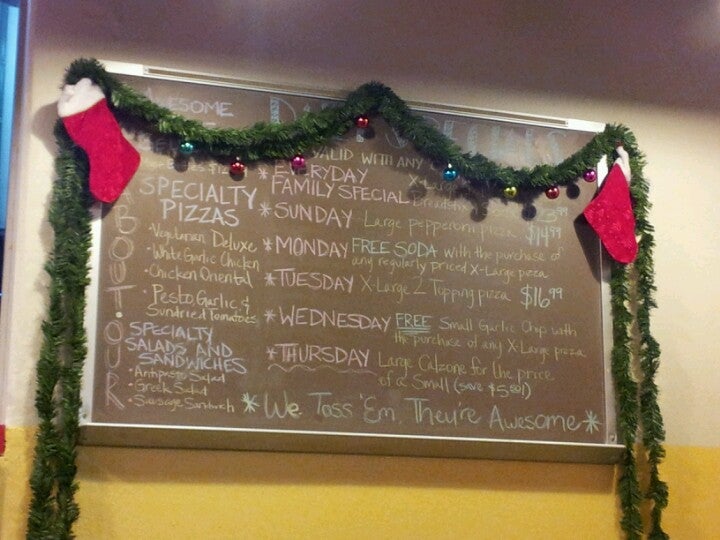 AWESOME
ABOUT OUR
SPECIALTY
PIZZAS
• Vegetarian Deluxe
• White Garlic Chicken
• Chicken Oriental
• Pesto, Garlic, &
Sundried Tomatoes
SPECIALTY
SALADS AND
SANDWICHES
• Antipasto Salad
• Greek Salad
• Sausage Sandwich
DAILY SPECIALS
VALID WITH ANY
* EVERYDAY
FAMILY SPECIAL X-Large
Breadsti 23.99
* SUNDAY Large pepperoni pizza $14.99
* MONDAY FREE SODA with the purchase of
any regularly priced X-Large pizza
* TUESDAY X-Large 2 Topping pizza $16.99
* WEDNESDAY FREE Small Garlic Chop with
the purchase of any X-Large pizza
* THURSDAY Large Calzone for the price
of a Small (save $5.50!)
* We Toss 'Em, They're Awesome *